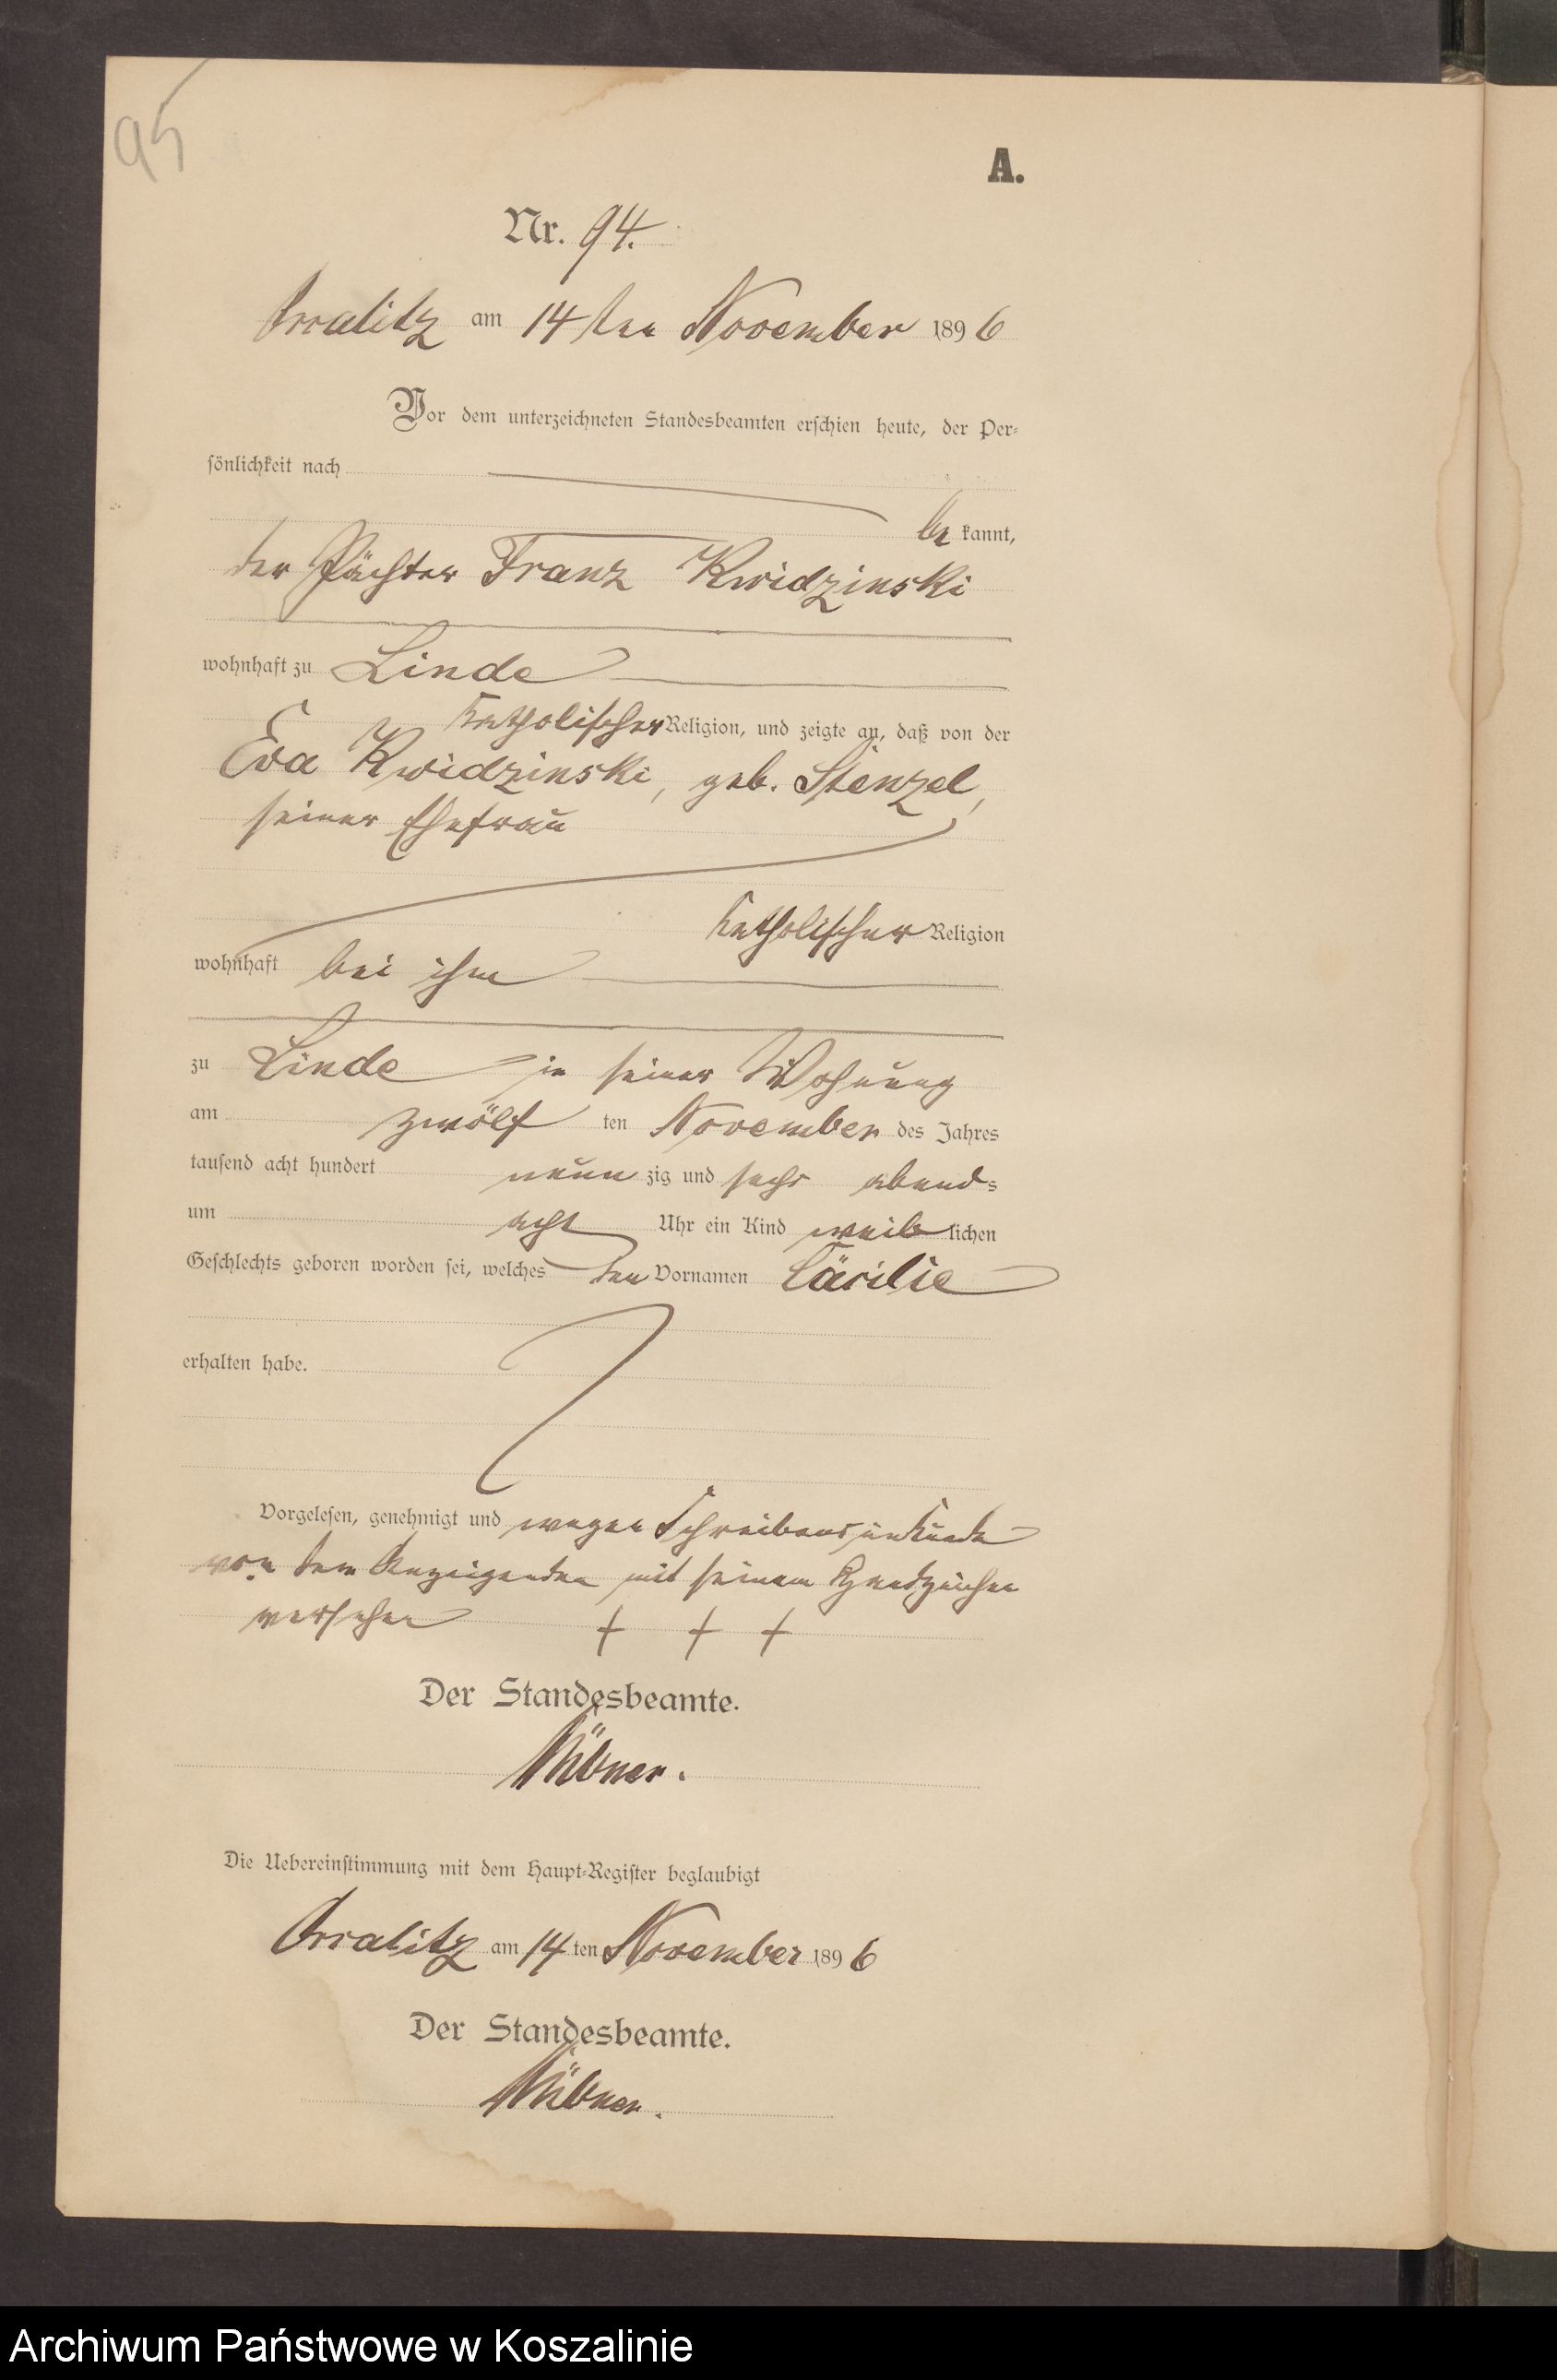 95
A.
Nr. 94.
am 14ten November 1896
Vor dem unterzeichneten Standesbeamten erschien heute, der Per-
sönlichkeit nach
bekannt,
der Pächter Franz Kwidzinski
wohnhaft zu Linde
katholischer Religion, und zeigte an, daß von der
Eva Kwidzinski, geb. Stenzel,
seiner Ehefrau
katholischer Religion
wohnhaft bei ihm
zu Linde in seiner Wohnung
am zwölften November des Jahres
tausend acht hundert neunzig und sechs abends
um acht Uhr ein Kind weiblichen
Geschlechts geboren worden sei, welches den Vornamen Cäcilie
erhalten habe.
Vorgelesen, genehmigt und wegen Schreibensunkunde
von dem Anzeigenden mit seinem Handzeichen
versehen + + +
Der Standesbeamte.
Die Uebereinstimmung mit dem Haupt-Register beglaubigt
am 14ten November 1896
Der Standesbeamte.
Archiwum Państwowe w Koszalinie